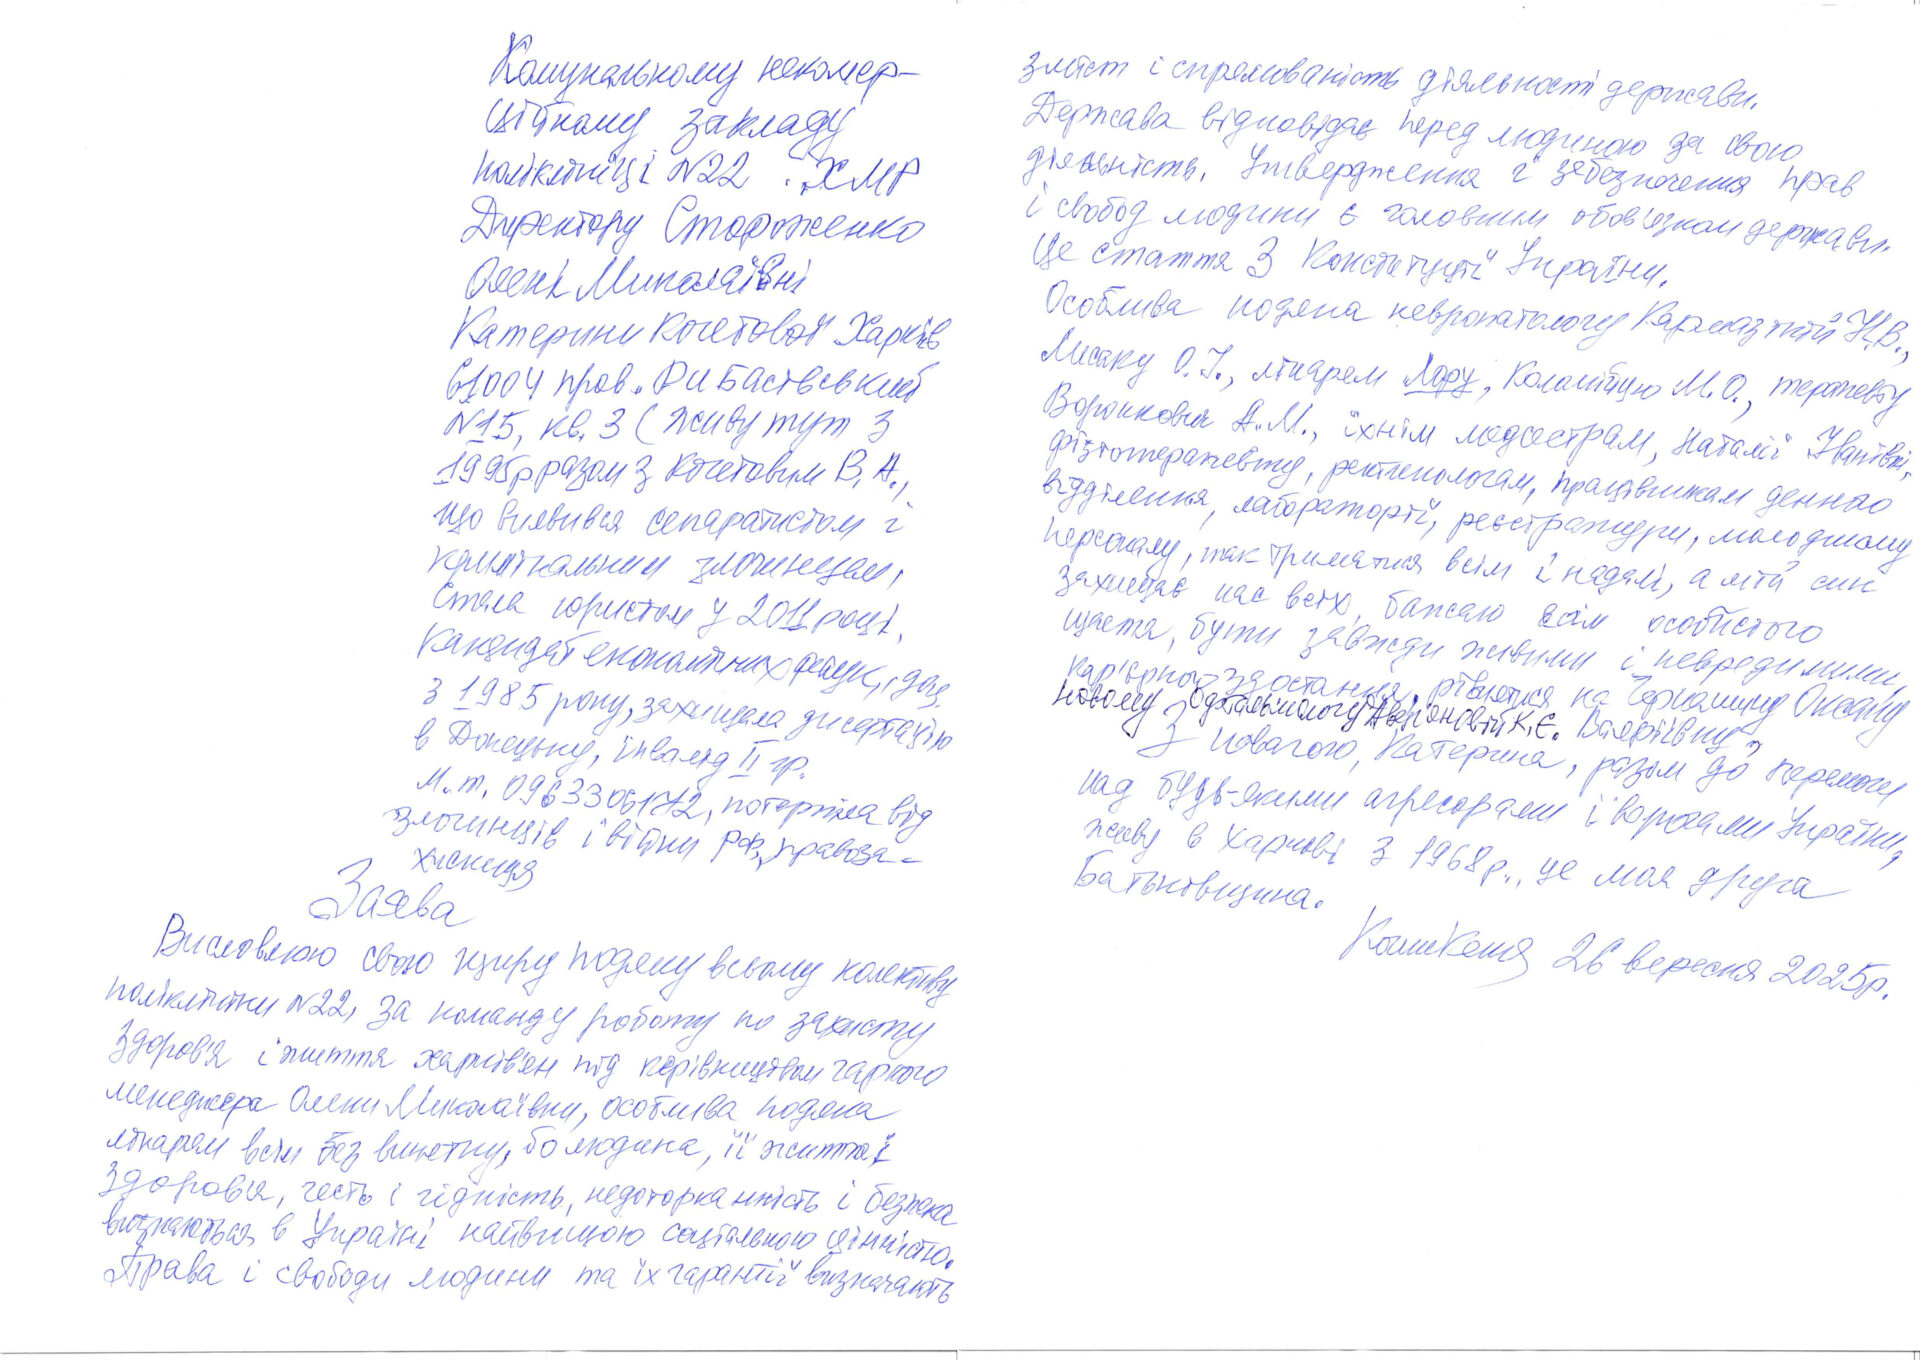 Комунальному некомер-
ційному закладу
поліклініці №22 ХМР
Директору Стороженко
Олені Миколаївні
Катерини Кочетової Харків
61004 пров. Рибасівський
№15, кв. 3 (живу тут з
1995р разом з Кочетовим В. А.,
що виявився сепаратистом і
кримінальним злочинцем,
Стала юристом у 2011 році,
Кандидат економічних наук,
з 1985 року, захищала дисертацію
в Донецьку, інвалід II гр.
м.т. 0963306172, потерпіла від
злочинців і війни РФ, правоза-
хисниця
Заява
Висловлюю свою щиру подяку всьому колективу
поліклініки №22, за команду роботу по захисту
здоров'я і життя харків'ян під керівництвом гарного
менеджера Олени Миколаївни, особлива подяка
лікарям всім без винятку, бо людина, її життя і
здоров'я, честь і гідність, недоторканність і безпека
визнаються в Україні найвищою соціальною цінністю.
Права і свободи людини та їх гарантії визначають
зміст і спрямованість діяльності держави.
Держава відповідає перед людиною за свою
діяльність. Утвердження і забезпечення прав
і свобод людини є головним обов'язком держави.
Це стаття 3 Конституції України.
Особлива подяка невропатологу Кармазіній Н.В.,
Лисаку О.І., лікарем Лору, Коломійцю М.О., терапевту
Воронкович А.М., їхнім медсестрам, Наталії Іванівні,
фізіотерапевту, рентгенологам, працівникам денного
відділення, лабораторії, реєстратури, молодшому
персоналу, так триматися всім і надалі, а мій син
захищає нас всіх, бажаю всім особистого
щастя, бути завжди живими і невредимими,
кар'єрного зростання, рівнятися на Оксану
новому офтальмологу Авер'яновій К.Є. Валеріївну,
З повагою, Катерина, разом до перемоги
над будь-якими агресорами і ворогами України,
живу в Харкові з 1968р., це моя друга
Батьківщина.
26 вересня 2025р.